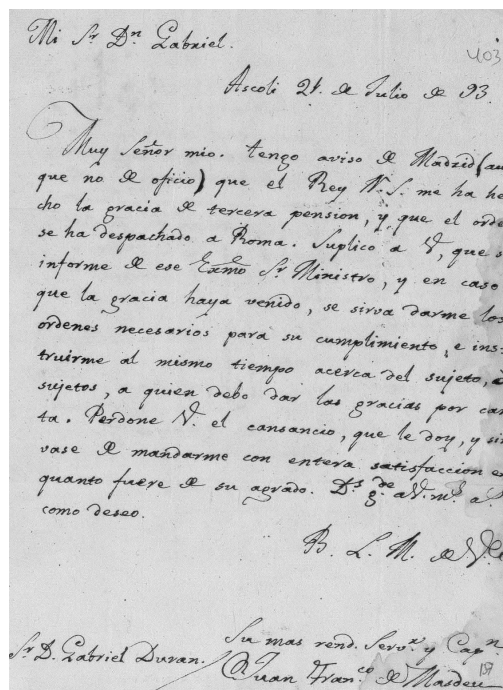 Mi Sr. Dn. Gabriel.
403
Ascoli 21. de Julio de 93.
Muy Señor mio. tengo aviso de Madrid (au
que no de oficio) que el Rey N. S. me ha he
cho la gracia de tercera pension, y que el orde
se ha despachado a Roma. Suplico a V, que s
informe de ese Exmo Sr. Ministro, y en caso
que la gracia haya venido, se sirva darme los
ordenes necesarios para su cumplimiento, e ins-
truirme al mismo tiempo acerca del sujeto, ó
sujetos, a quien debo dar las gracias por car
ta. Perdone V. el cansancio, que le doy, y sir
vase de mandarme con entera satisfaccion en
quanto fuere de su agrado. Ds. gde. a V. ms. as.
como deseo.
B. L. M. de V.
Su mas rend. Servr. y Capn.
Sr. D. Gabriel Duran.
Juan Franco. de Masdeu